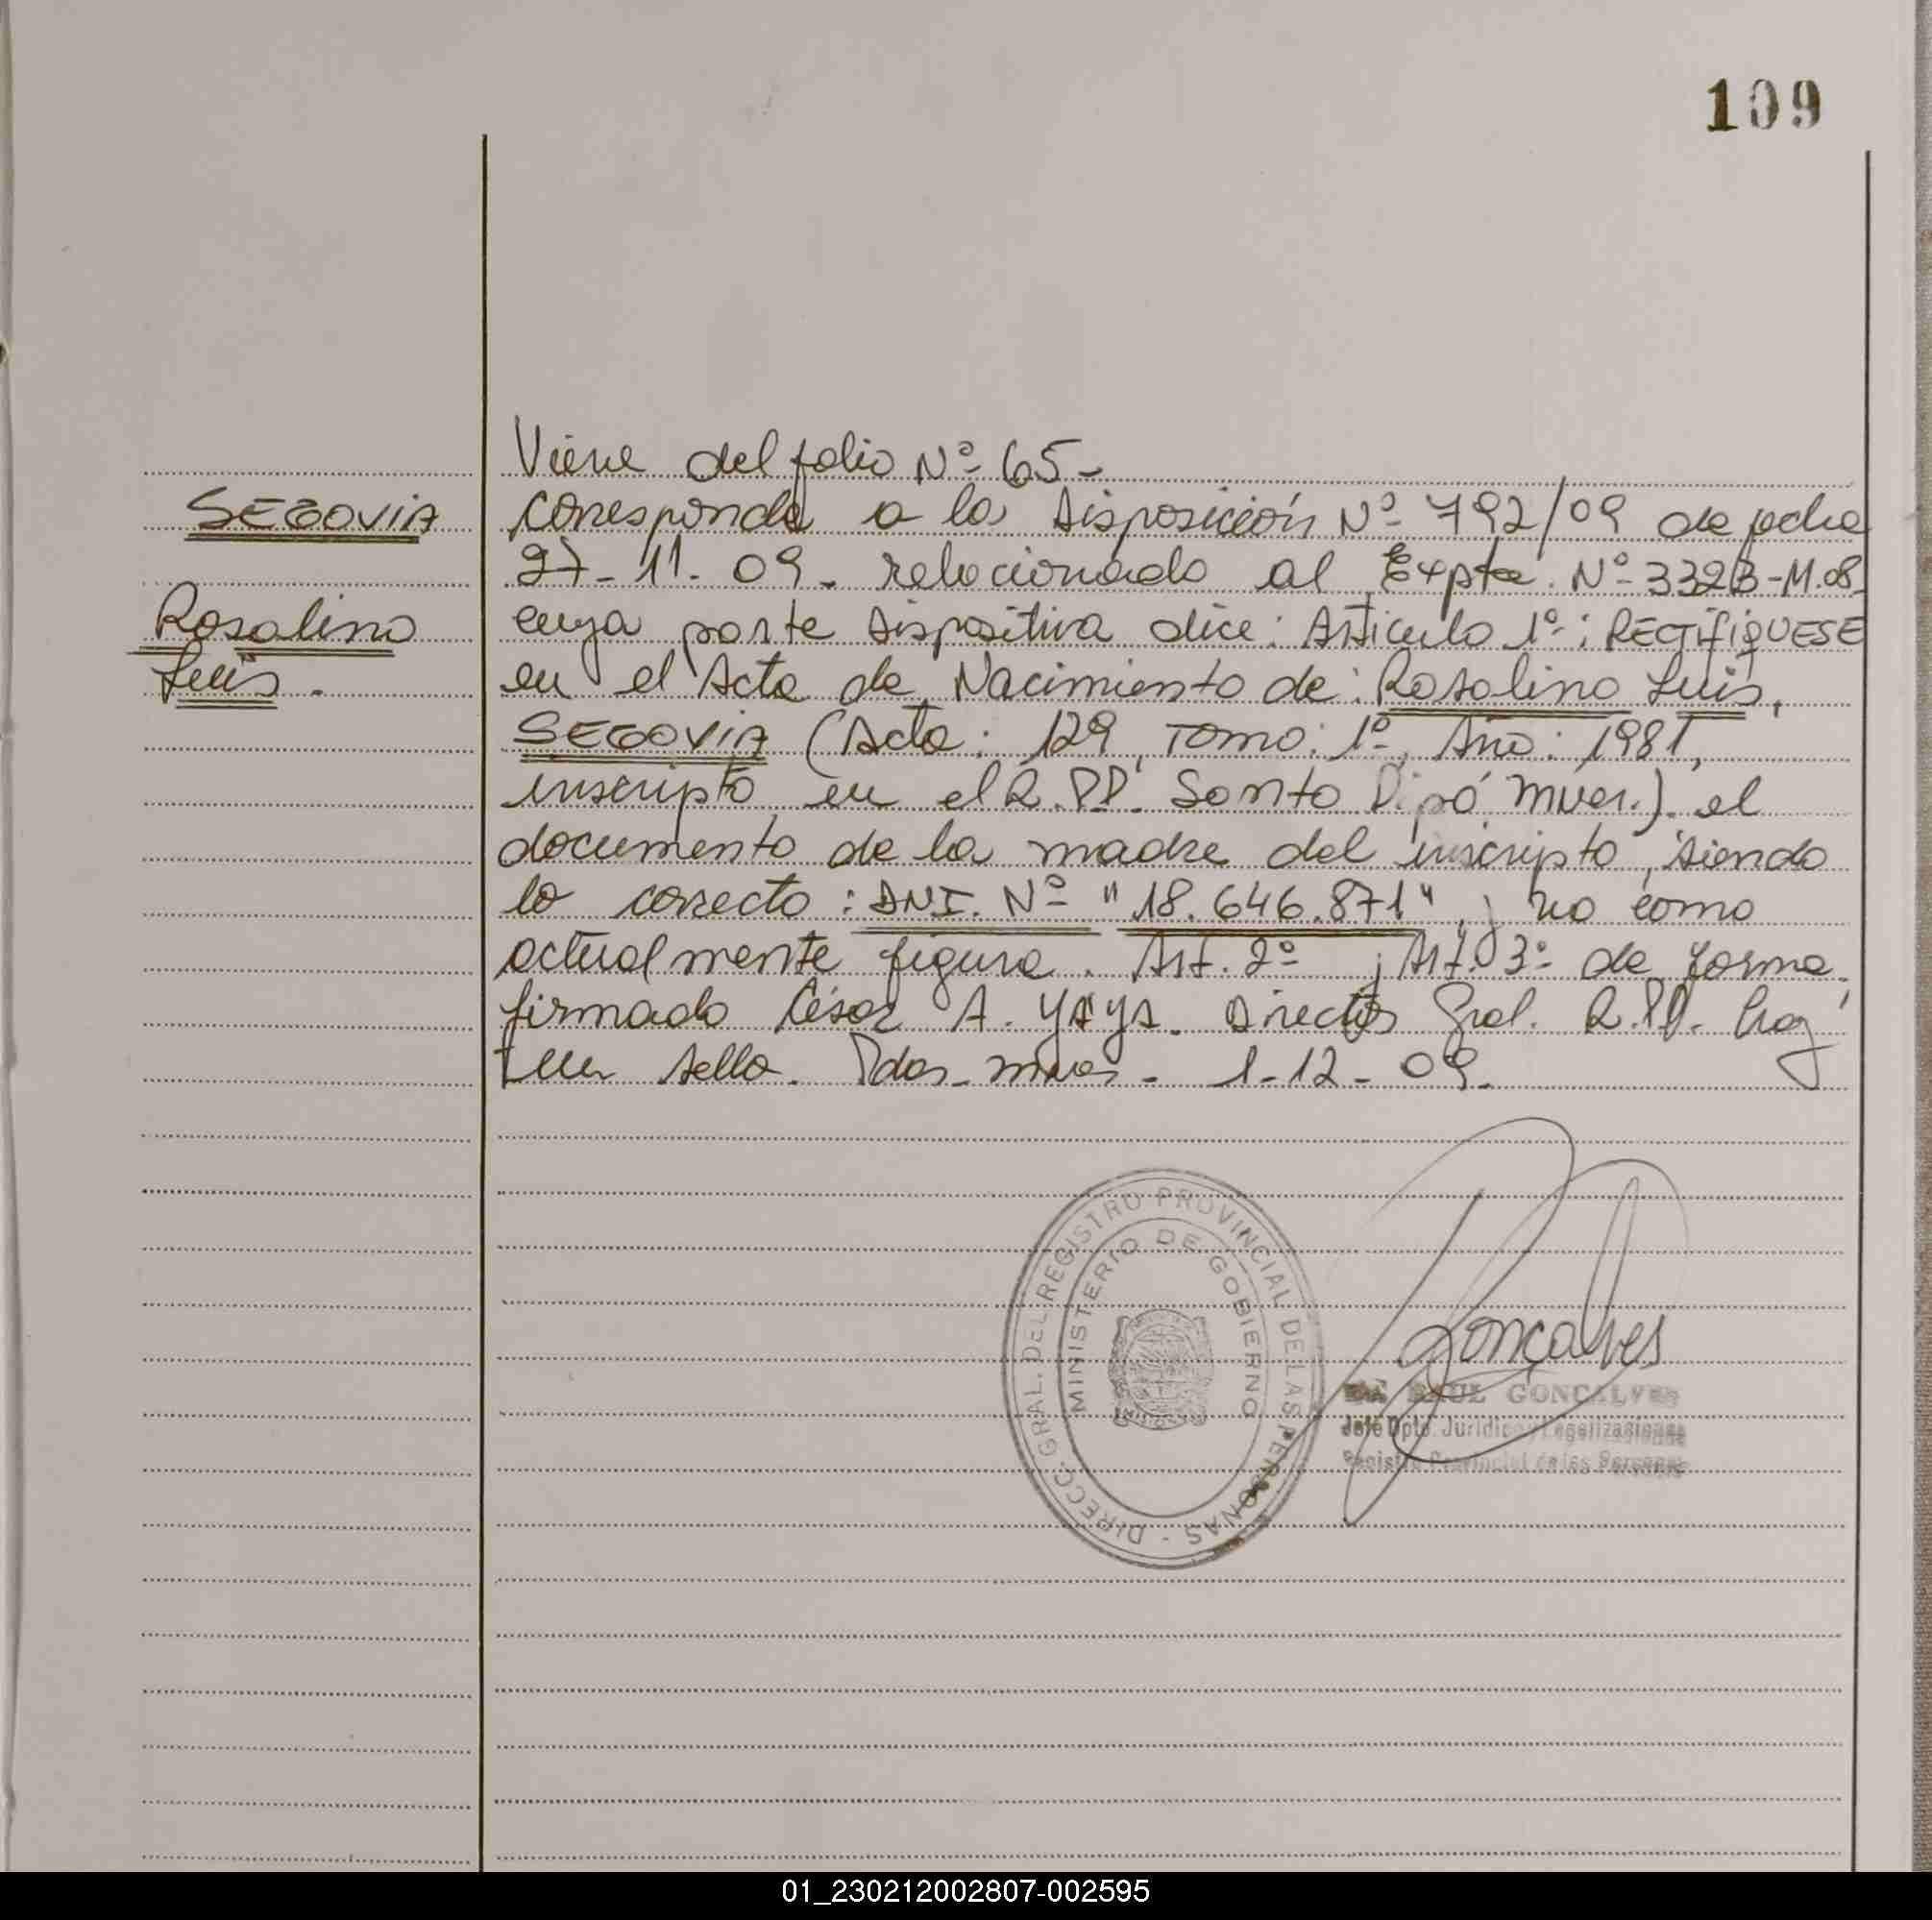 109
Viene del folio Nº 65-
SEGOVIA
corresponde a la Disposición Nº 792/09 de fecha
27-11-09- relacionado al Expte. Nº 3323-M.08-
Rosalino
cuya parte dispositiva dice: Artículo 1º: RECTIFIQUESE
Luis.
en el Acta de Nacimiento de: Rosalino Luis,
SEGOVIA (Acta: 129, Tomo: 1º, Año: 1981,
inscripto en el R.PP. Santo Pipó Mnes.) el
documento de la madre del inscripto, siendo
lo correcto: DNI. Nº "18.646.871", y no como
actualmente figura. Art. 2º y Art. 3º de forma.
firmado César A. YAYA. Director Gral. R.PP. hay
un sello. Pdas. mnes- 1-12-09.
DIRECC. GRAL. DEL REGISTRO PROVINCIAL DE LAS PERSONAS -
MINISTERIO DE GOBIERNO
MISIONES
Gonçalves
RAUL GONCALVES
Jefe Dpto. Jurídico y Legalizaciones
Registro Provincial de las Personas
01_230212002807-002595